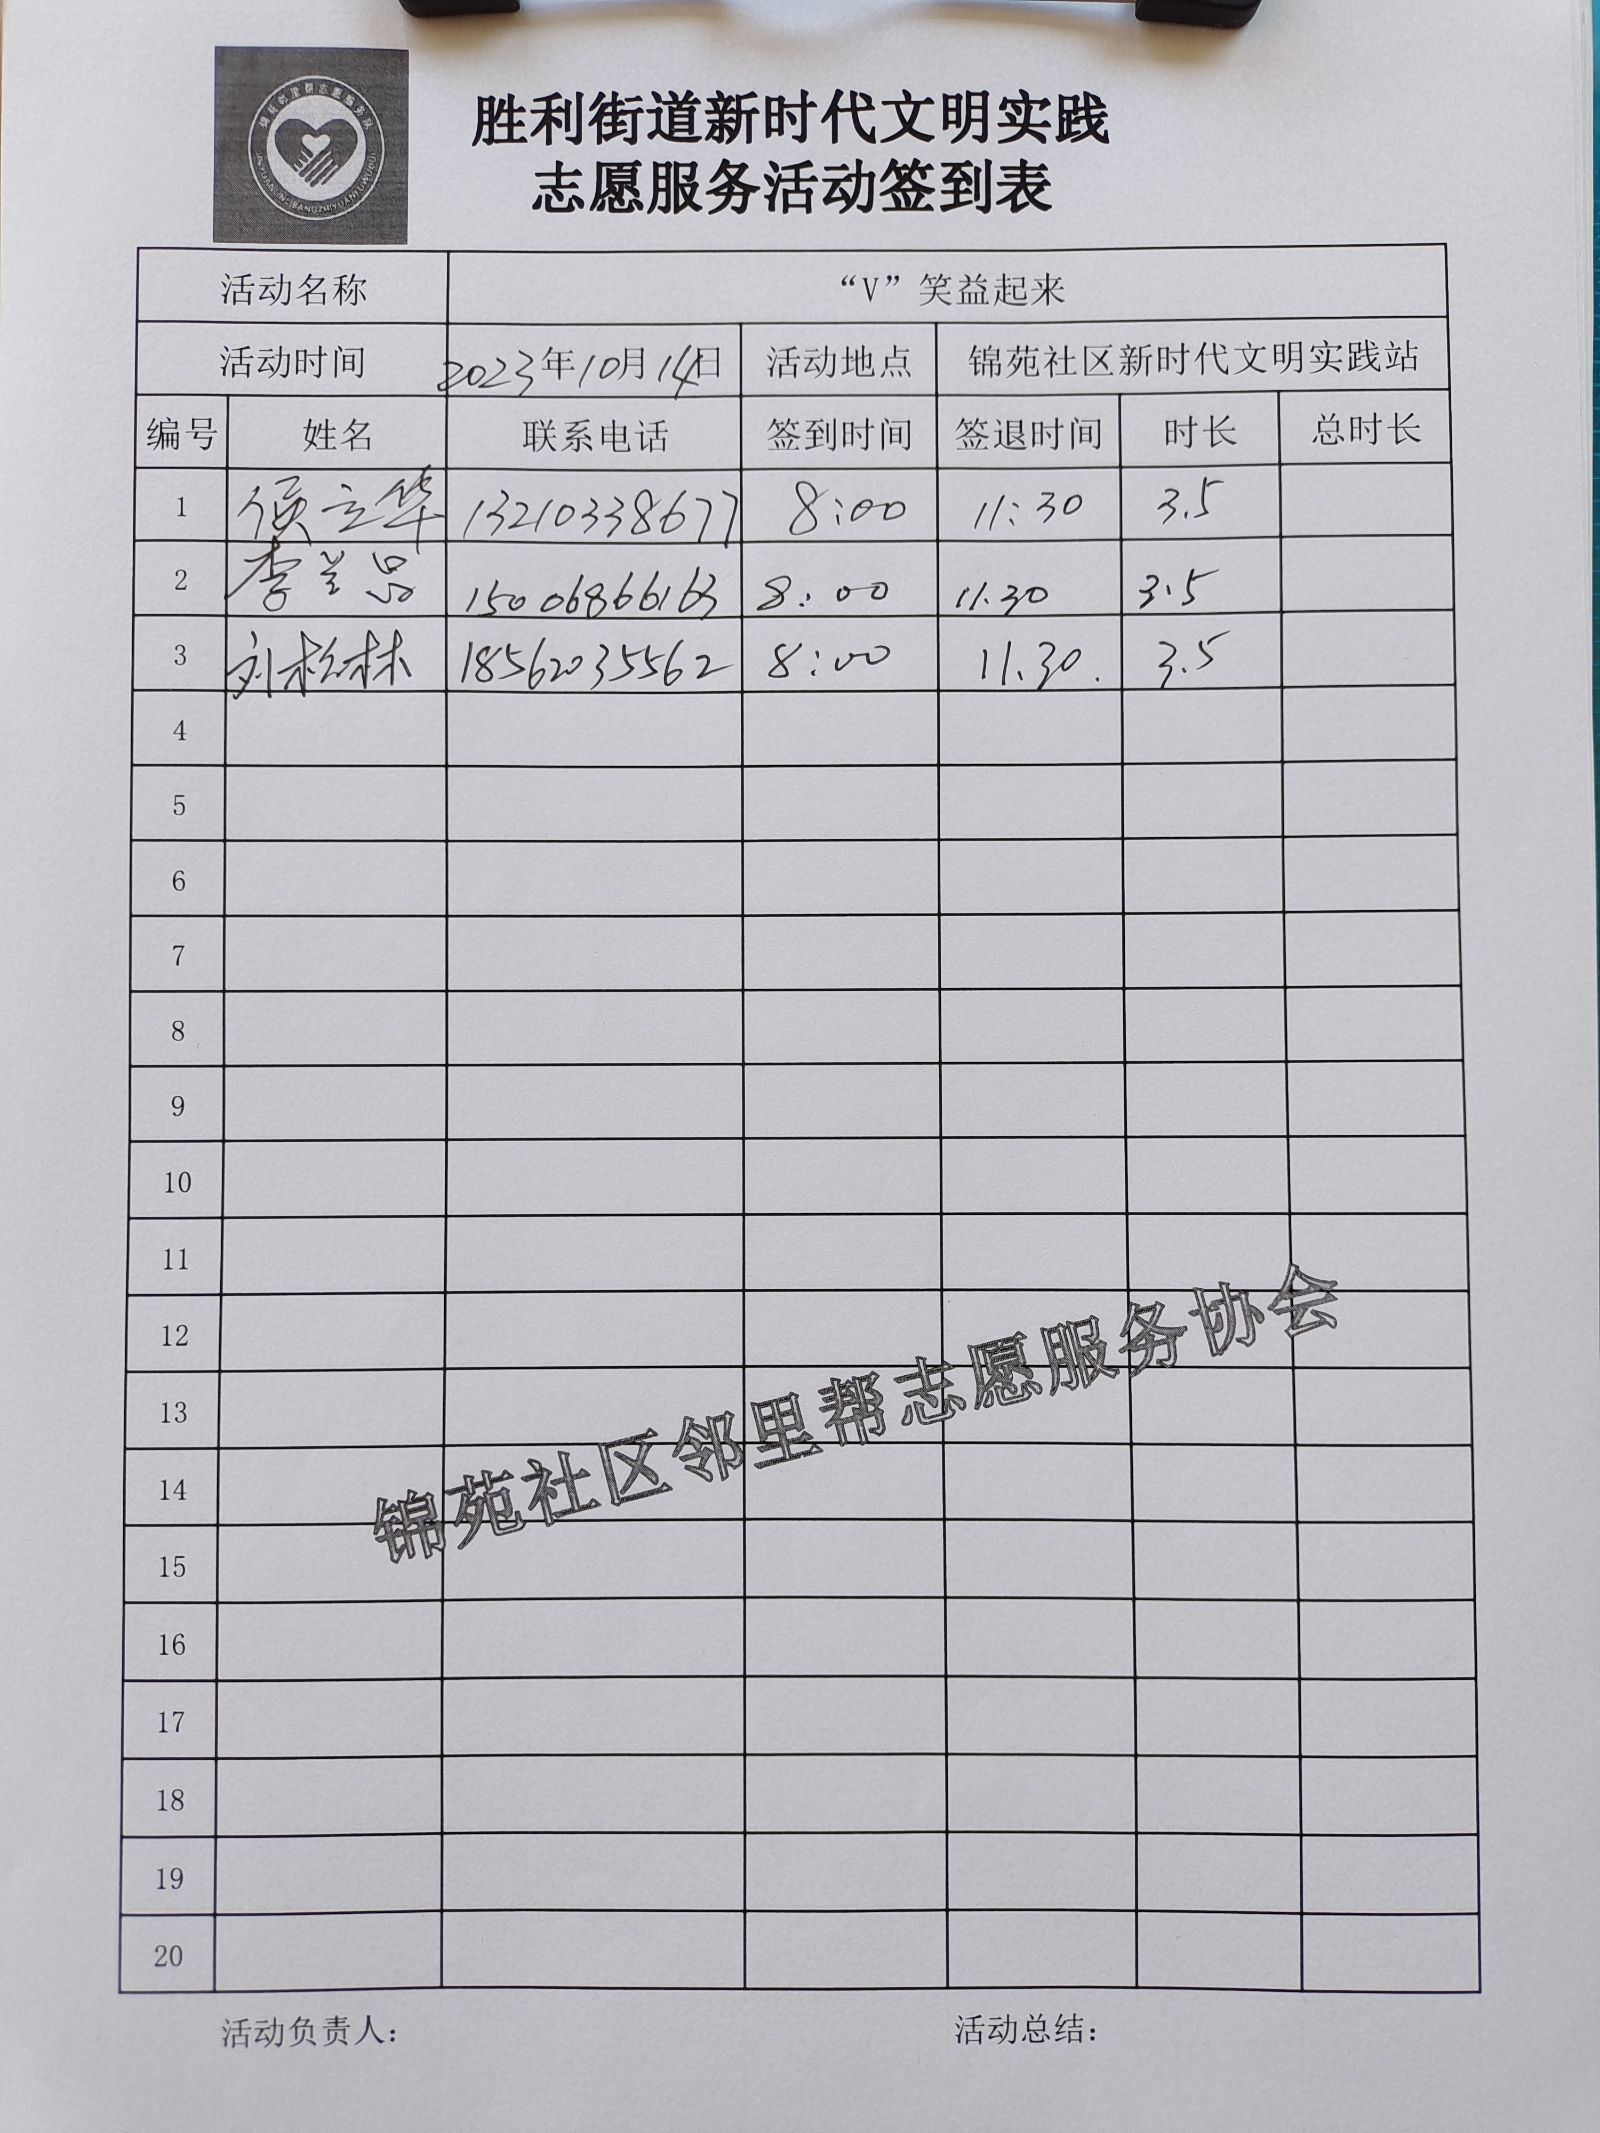 锦苑邻里帮志愿服务队
胜利街道新时代文明实践
志愿服务活动签到表
活动名称 “V”笑益起来
活动时间 2023年10月14日 活动地点 锦苑社区新时代文明实践站
编号 姓名 联系电话 签到时间 签退时间 时长 总时长
1 侯立华 13210338677 8:00 11:30 3.5
2 李兰 15006866163 8:00 11.30 3.5
3 刘松林 18562035562 8:00 11.30. 3.5
4
5
6
7
8
9
10
11
12
13
14
15
16
17
18
19
20
锦苑社区邻里帮志愿服务协会
活动负责人: 活动总结: